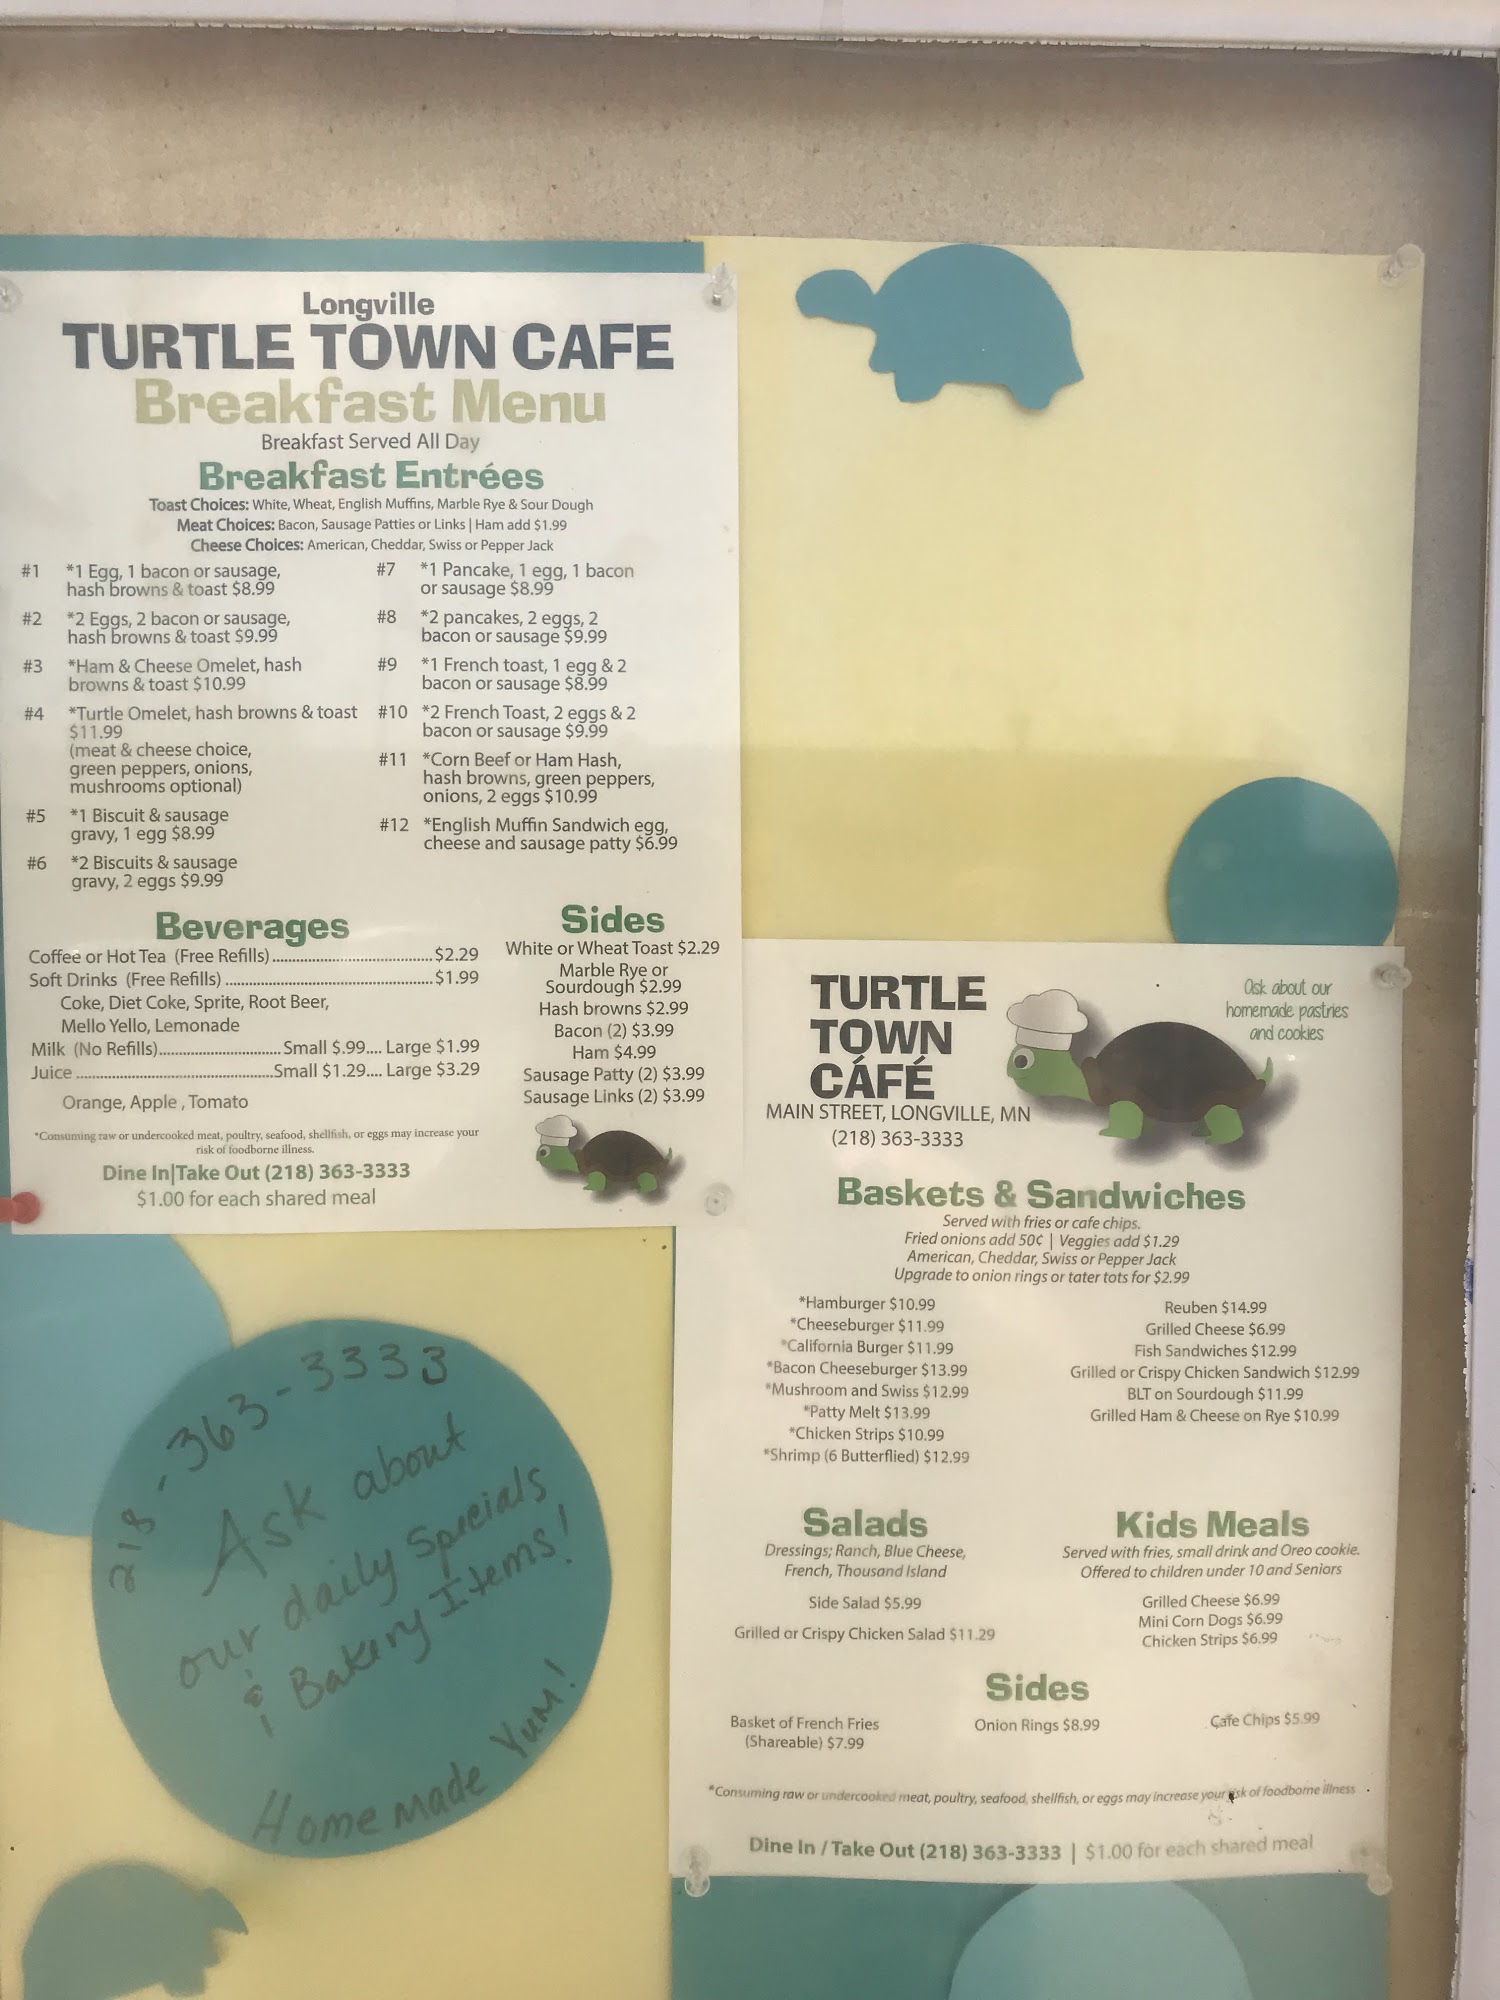 Longville
TURTLE TOWN CAFE
Breakfast Menu
Breakfast Served All Day
Breakfast Entrées
Toast Choices: White, Wheat, English Muffins, Marble Rye & Sour Dough
Meat Choices: Bacon, Sausage Patties or Links | Ham add $1.99
Cheese Choices: American, Cheddar, Swiss or Pepper Jack
#1 *1 Egg, 1 bacon or sausage,
hash browns & toast $8.99
#2 *2 Eggs, 2 bacon or sausage,
hash browns & toast $9.99
#3 *Ham & Cheese Omelet, hash
browns & toast $10.99
#4 *Turtle Omelet, hash browns & toast
$11.99
(meat & cheese choice,
green peppers, onions,
mushrooms optional)
#5 *1 Biscuit & sausage
gravy, 1 egg $8.99
#6 *2 Biscuits & sausage
gravy, 2 eggs $9.99
#7 *1 Pancake, 1 egg, 1 bacon
or sausage $8.99
#8 *2 pancakes, 2 eggs, 2
bacon or sausage $9.99
#9 *1 French toast, 1 egg & 2
bacon or sausage $8.99
#10 *2 French Toast, 2 eggs & 2
bacon or sausage $9.99
#11 *Corn Beef or Ham Hash,
hash browns, green peppers,
onions, 2 eggs $10.99
#12 *English Muffin Sandwich egg,
cheese and sausage patty $6.99
Beverages
Coffee or Hot Tea (Free Refills)....................................$2.29
Soft Drinks (Free Refills)..............................................$1.99
Coke, Diet Coke, Sprite, Root Beer,
Mello Yello, Lemonade
Milk (No Refills)............................Small $.99.... Large $1.99
Juice.............................................Small $1.29.... Large $3.29
Orange, Apple , Tomato
Sides
White or Wheat Toast $2.29
Marble Rye or
Sourdough $2.99
Hash browns $2.99
Bacon (2) $3.99
Ham $4.99
Sausage Patty (2) $3.99
Sausage Links (2) $3.99
*Consuming raw or undercooked meat, poultry, seafood, shellfish, or eggs may increase your
risk of foodborne illness.
Dine In|Take Out (218) 363-3333
$1.00 for each shared meal
218-363-3333
Ask about
our daily Specials
& Bakery Items!
Homemade Yum!
TURTLE
TOWN
CÁFÉ
MAIN STREET, LONGVILLE, MN
(218) 363-3333
Ask about our
homemade pastries
and cookies
Baskets & Sandwiches
Served with fries or cafe chips.
Fried onions add 50¢ | Veggies add $1.29
American, Cheddar, Swiss or Pepper Jack
Upgrade to onion rings or tater tots for $2.99
*Hamburger $10.99
*Cheeseburger $11.99
*California Burger $11.99
*Bacon Cheeseburger $13.99
*Mushroom and Swiss $12.99
*Patty Melt $13.99
*Chicken Strips $10.99
*Shrimp (6 Butterflied) $12.99
Reuben $14.99
Grilled Cheese $6.99
Fish Sandwiches $12.99
Grilled or Crispy Chicken Sandwich $12.99
BLT on Sourdough $11.99
Grilled Ham & Cheese on Rye $10.99
Salads
Dressings; Ranch, Blue Cheese,
French, Thousand Island
Side Salad $5.99
Grilled or Crispy Chicken Salad $11.29
Kids Meals
Served with fries, small drink and Oreo cookie.
Offered to children under 10 and Seniors
Grilled Cheese $6.99
Mini Corn Dogs $6.99
Chicken Strips $6.99
Sides
Basket of French Fries
(Shareable) $7.99
Onion Rings $8.99
Cafe Chips $5.99
*Consuming raw or undercooked meat, poultry, seafood, shellfish, or eggs may increase your risk of foodborne illness
Dine In / Take Out (218) 363-3333 | $1.00 for each shared meal